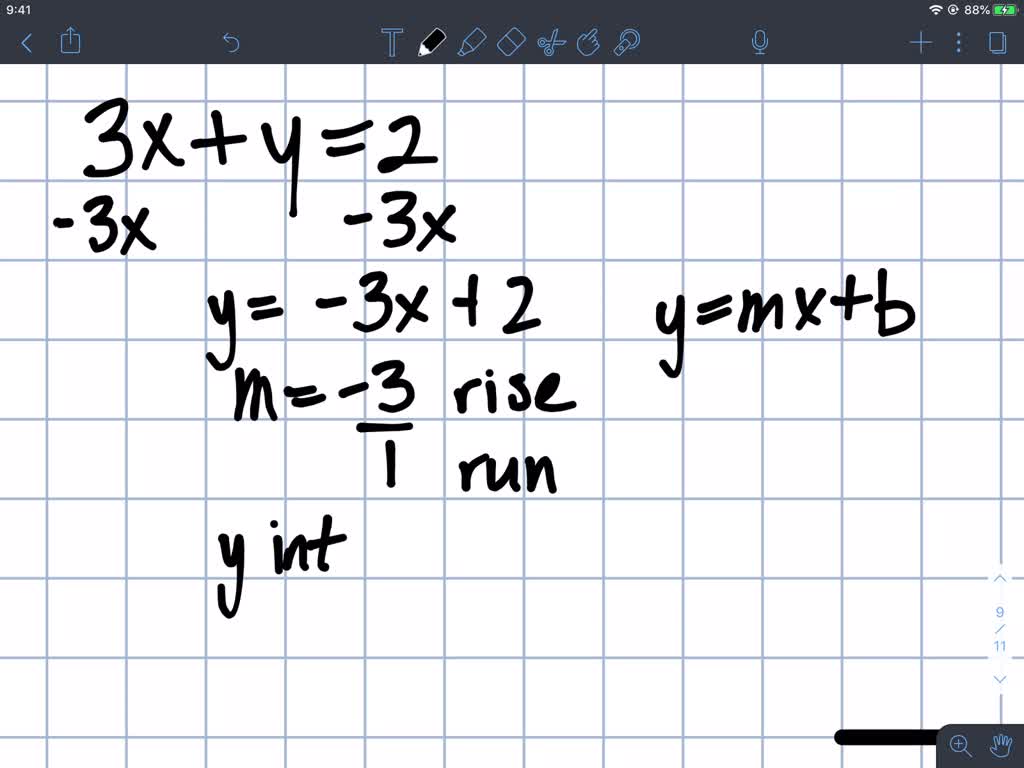 9:41 88%
3x+y=2
-3x -3x
y= -3x+2 y=mx+b
m=-3 rise
1 run
y int
9
/
11